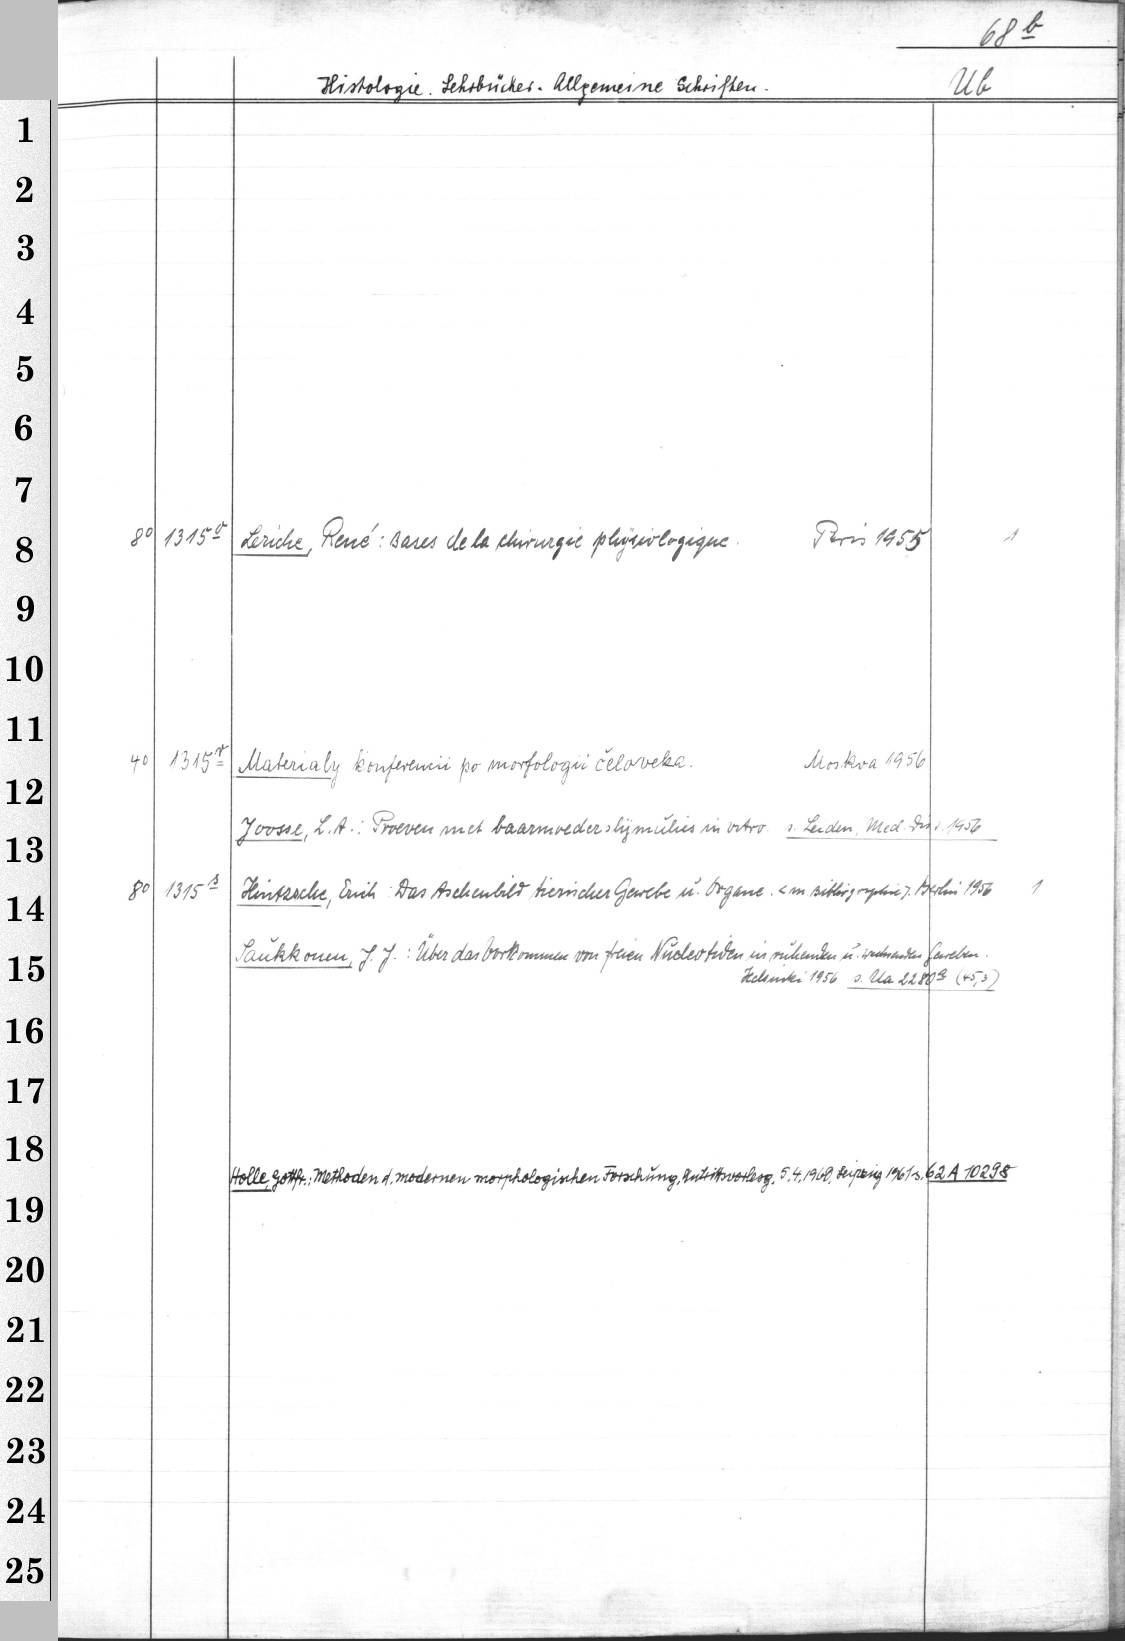 68 b
Histologie. Lehrbücher. Allgemeine Schriften. Ub
1
2
3
4
5
6
7
8° 1315 Leriche, René: Bases de la chirurgie physiologique. Paris 1955 1
8
9
10
11
4° 1315 Materialy konferencii po morfologii čeloveka. Moskva 1956
12
Joosse, L.A.: Proeven met baarmoederslijmulus in vitro. s. Leiden, Med. Diss. 1956
13
8° 1315 s Hintzsche, Erich: Das Aschenbild tierischer Gewebe u. Organe. <m. Bibliographie>. Berlin 1956 1
14
Saukkonen, J. J.: Über das Vorkommen von freien Nucleotiden in ruhenden u. wachsenden Geweben.
15
Helsinki 1956 s. Ua 2280 (45,3)
16
17
18
Holle, Gottfr.: Methoden d. modernen morphologischen Forschung. Antrittsvorlesg. 5.4.1960. Leipzig 1961 s. 62 A 10298
19
20
21
22
23
24
25